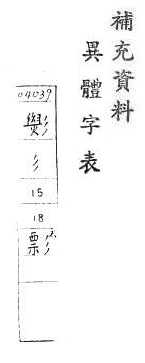 補充資料
異體字表
04039
彡
15
18
彯